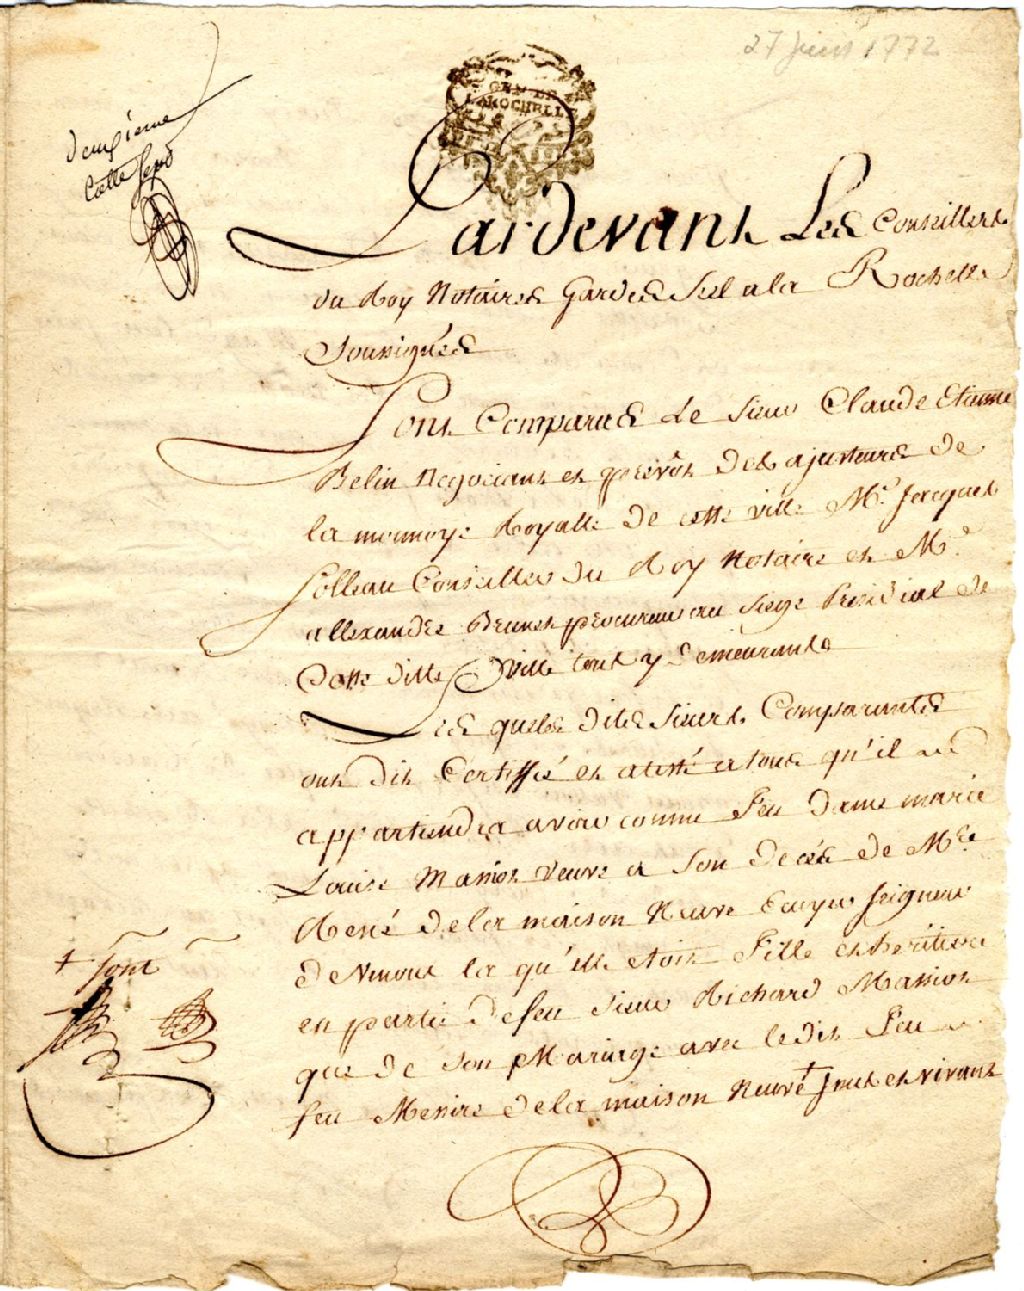 27 juin 1772
GEN DE
LAROCHELLE
deuxieme
Cotte
Pardevant Les Conseillers
du Roy Notaires Gardes Scel a la Rochelle
Soussignés
Sont Comparus Le Sieur Claude Etienne
Belin Negociant et prevôt des ajusteurs de
la monnoye Royalle de cette ville Me. Jacques
Solleau Conseiller du Roy Notaire et Me.
allexandre Brunet procureur au siege Presidial de
Cette ditte ville tous y demeurants
Les quels dits Sieurs Comparants
ont dit Certiffié et atesté a tous qu'il
appartiendra avoir connu Feu dame marie
Louise Massiot veuve a Son decés de Mre
René de la maison Neuve Ecuyer Seigneur
de la qu'elle etoit Fille et heritiere
en partie de feu Sieur Richard Massiot
que de Son Mariage avec le dit Feu
feu Messire de la maison Neuve + Issus et vivant
+ sont